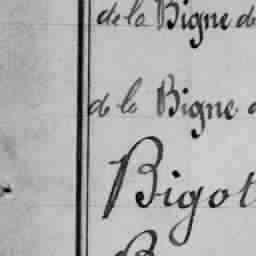 de la Bigne de
de la Bigne
Bigot